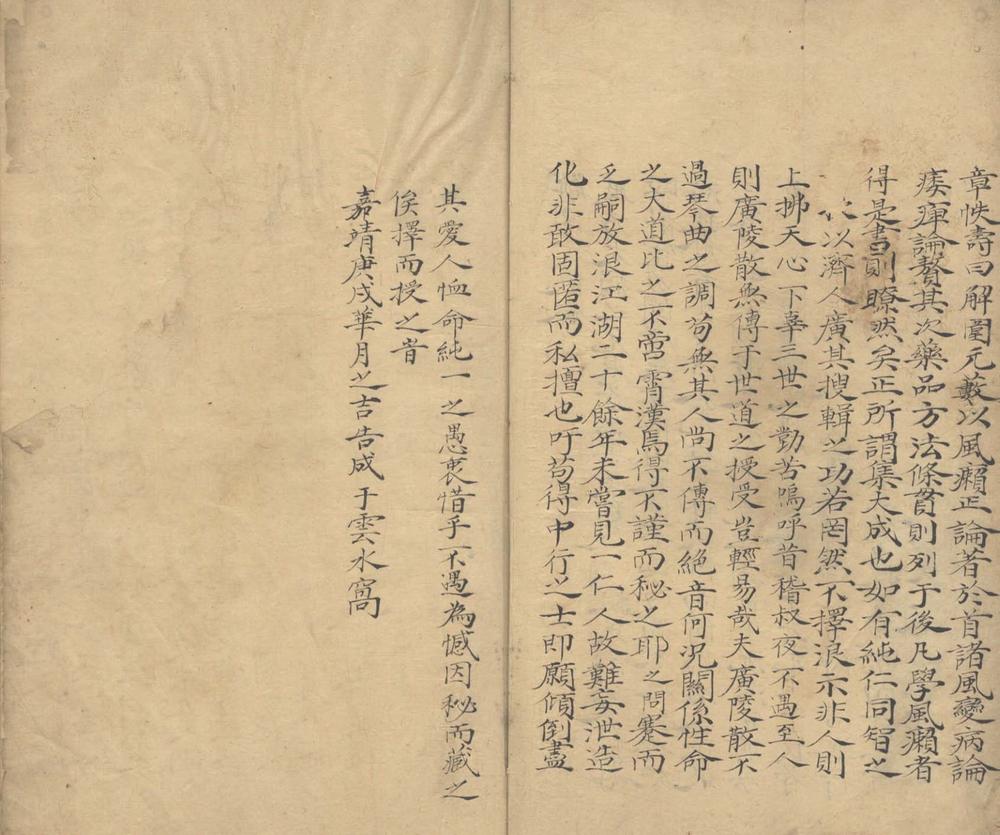 章帙壽曰解圍元藪以風癩正論著於首諸風變病論
痿痺論贅其次藥品方法條貫則列于後凡學風癩者
得是書則瞭然矣正所謂集大成也如有純仁同智之
以濟人廣其搜輯之功若罔然不擇浪示非人則
上拂天心下辜三世之勤苦嗚呼昔嵇叔夜不遇至人
則廣陵散無傳于世道之授受豈輕易哉夫廣陵散不
過琴曲之調茍無其人尚不傳而絕音何況關係性命
之大道比之不啻霄漢焉得不謹而秘之耶之問蹇而
乏嗣放浪江湖二十餘年未嘗見一仁人故難妄泄造
化非敢固匿而私擅也吁茍得中行之士即願傾倒盡
其愛人恤命純一之愚衷惜乎不遇為憾因秘而藏之
俟擇而授之旹
嘉靖庚戌華月之吉告成于雲水窩